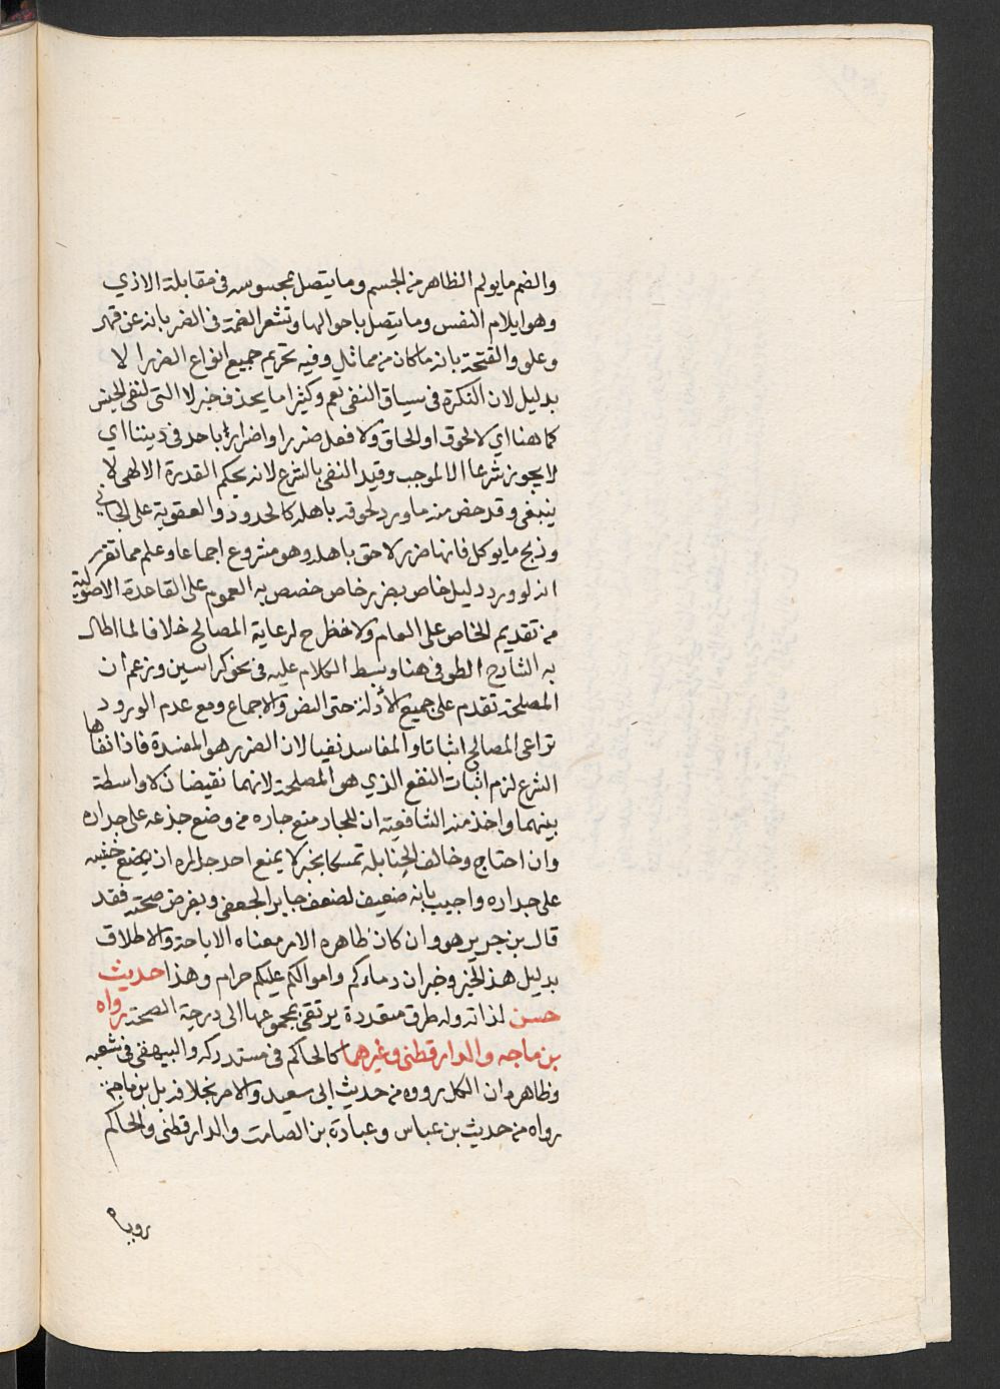 والضم ما يولم الظاهر من الجسم وما يتصل بمحسوسه في مقابلة الاذي
وهو ايلام النفس وما يتصل باحوالها وتشعر الضمة في الضر بانه عن قهر
وعلو والفتحة بانه ما كان من مماثل وفيه تحريم جميع انواع الضرر الا
بدليل لان النكرة في سياق النفي تعم وكثيرا ما يحذف خبر لا التي لنفي الجنس
كما هنا اي لا لحوق او الحاق ولا فعل ضرر او اضرار باحد في ديننا اي
لا يجوز شرعا الا لموجب وقيد النفي بالشرع لانه بحكم القدرة الالهي لا
ينبغي وقد خص منه ما ورد لحوقه باهله كالحدود والعقوبة على الجاني
وذبح ما يوكل فانها ضرر لاحق باهله وهو مشروع اجماعا وعلم مما تقرر
انه لو ورد دليل خاص بضرر خاص خصص به العموم على القاعدة الاصولية
من تقديم الخاص على العام ولا نظر ح لرعاية المصالح خلافا لما اطال
به الشارح الطوفي هنا وبسط الكلام عليه في نحو كراسين وزعم أن
المصلحة تقدم على جميع الأدلة حتى النص والاجماع ومع عدم الورود
تراعى المصالح اثباتا والمفاسد نفيا لان الضرر هو المفسدة فاذا نفاها
الشرع لزم اثبات النفع الذي هو المصلحة لانهما نقيضان لا واسطة
بينهما واخذ منه الشافعية ان للجار منع جاره من وضع جذعه على جداره
وان احتاج وخالف الحنابله تمسكا بخبر لا يمنع احدجاره ان يضع خشبه
على جداره واجيب بانه ضعيف لضعف جابر الجعفي وبفرض صحته فقد
قال بن جرير هو وان كان ظاهره الامر معناه الاباحة والاطلاق
بدليل هذ الخبر وخبر ان دماءكم واموالكم عليكم حرام وهذا حديث
حسن لذاته وله طرق متعددة يرتقي بمجموعها الى درجة الصحة رواه
بن ماجه والدارقطني وغيرهما كالحاكم في مستدركه والبيهقي في شعبه
وظاهره ان الكل رووه من حديث ابي سعيد والامر بخلافه بل بن ماجة
رواه من حديث بن عباس وعبادة بن الصامت والدارقطني والحاكم
روياه